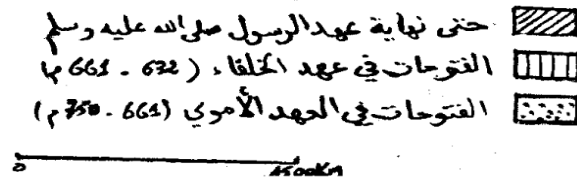 حتى نهاية عهد الرسول صلى الله عليه وسلم
الفتوحات في عهد الخلفاء ( 632 - 661 م)
الفتوحات في العهد الأموي (661 - 750 م)
0 1500Km